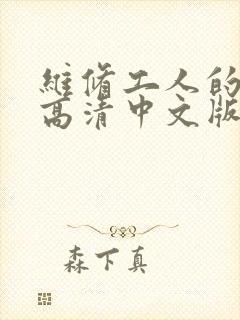 維脩工人的
高清中文版
森下真